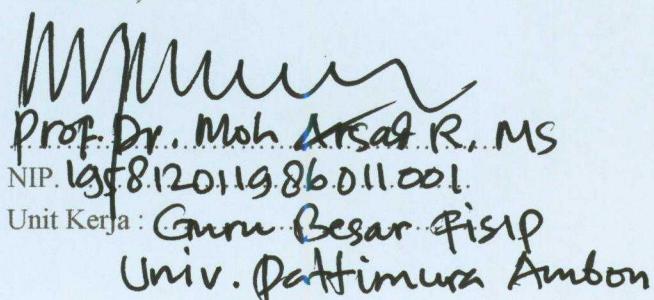 Prof. Dr. Moh Arsad R, MS
NIP. 195812011986011.001
Unit Kerja : Guru Besar FISIP
Univ. Pattimura Ambon